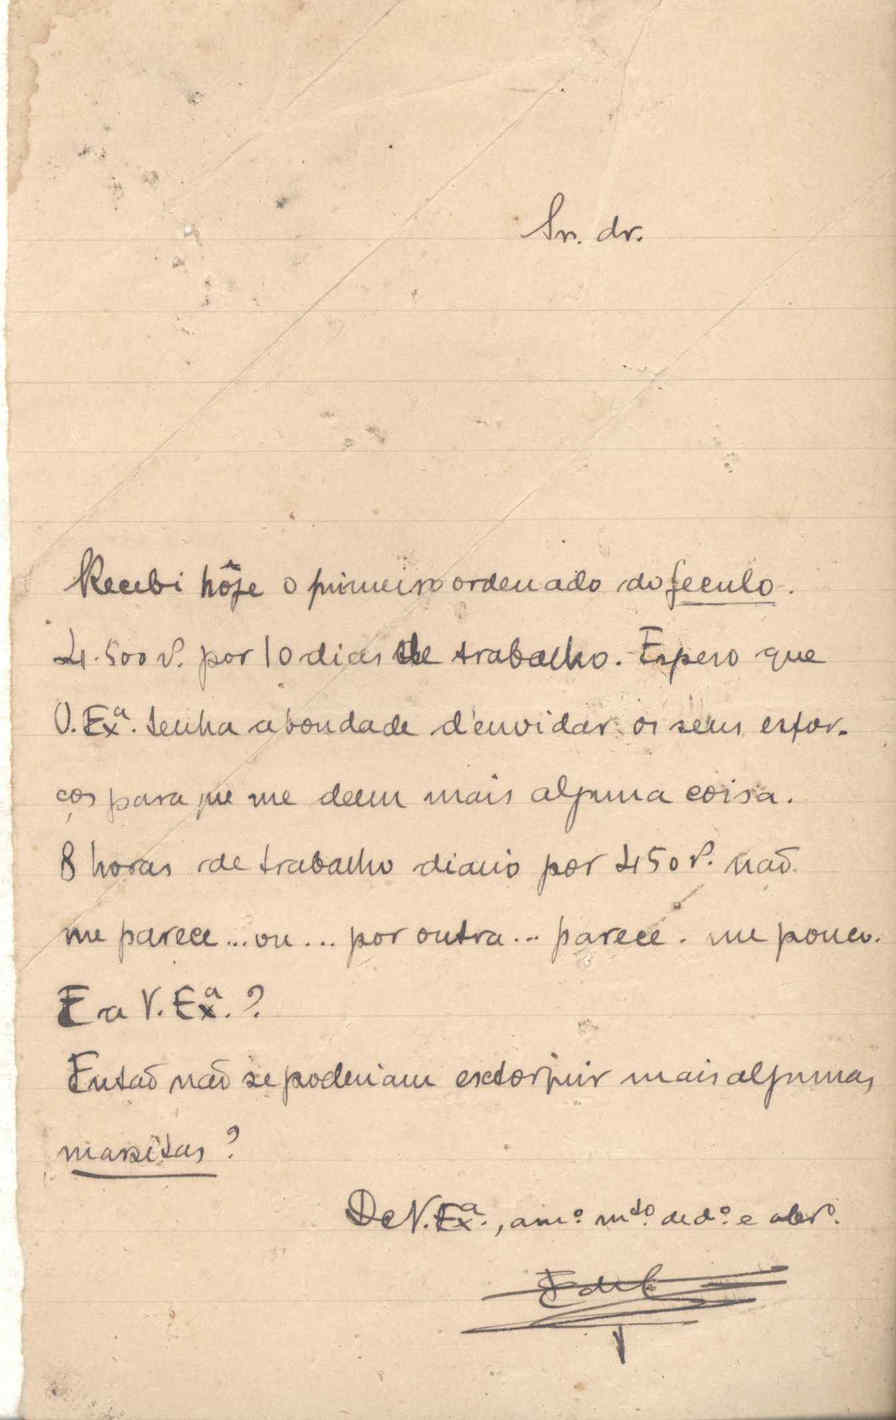 Snr. dr.
Recebi hôje o primeiro ordenado do Seculo.
4.500 rs. por 10 dias de trabalho. Espero que
V. Exª. tenha a bondade d'envidar os seus esfor-
ços para que me deem mais alguma coisa.
8 horas de trabalho diario por 450 rs. não
me parece... ou... por outra... parece-me pouco.
E a V. Exª.?
Então não se poderiam extorquir mais algumas
massitas?
De V. Exª., amº. mtº. dedº. e obrº.